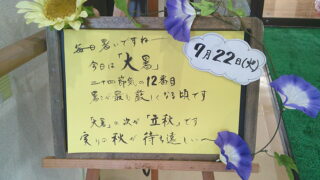 毎日暑いですね〜
今日は「大暑」
二十四節気の12番目
暑さが最も厳しくなる頃です
「大暑」の次が「立秋」です
実りの秋が待ち遠しい〜
7月22日(火)